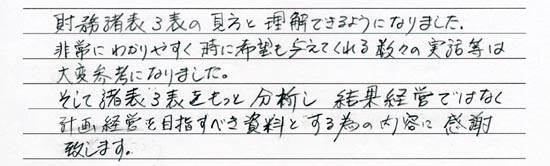 財務諸表3表の見方と理解できるようになりました.
非常にわかりやすく時に希望も与えてくれる数々の実話等は
大変参考になりました。
そして諸表3表をもっと分析し 結果経営ではなく
計画経営を目指すべき資料とする為の内容に感謝
致します。